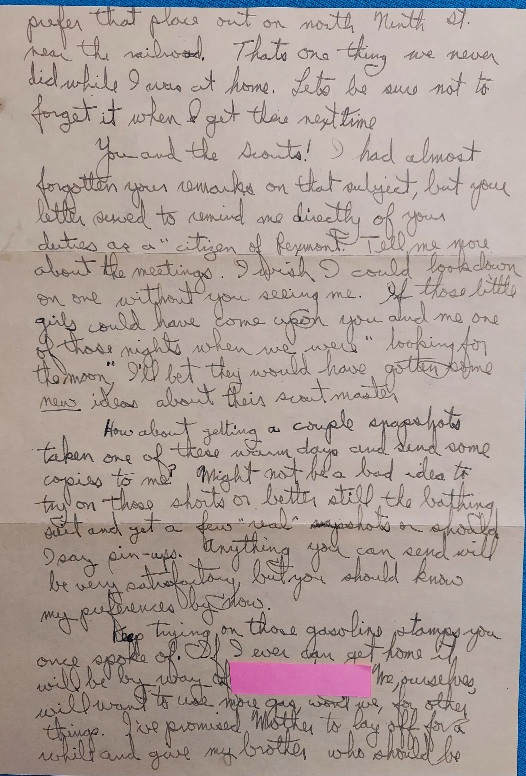 prefer that place out on north Ninth St.
near the railroad. Thats one thing we never
did while I was at home. Lets be sure not to
forget it when I get there next time
You and the Scouts! I had almost
forgotten your remarks on that subject, but your
letter served to remind me directly of your
duties as a "citizen of Tell me more
about the meetings. I wish I could look down
on one without you seeing me. If those little
girls could have come upon you and me one
of those nights when we were "looking for
the moon", I'll bet they would have gotten some
new ideas about their scout master
How about getting a couple snapshots
taken one of these warm days and send some
copies to me? Might not be a bad idea to
try on those shorts or better still the bathing
suit and get a few "real" snapshots or should
I say pin-ups. Anything you can send will
be very satisfactory, but you should know
my preferences by now.
Keep trying on those gasoline stamps you
once spoke of. If I ever can get home it
will be by way of We, ourselves,
will want to use more gas, won't we, for other
things. I've promised Mother to lay off for a
while and give my brother who should be